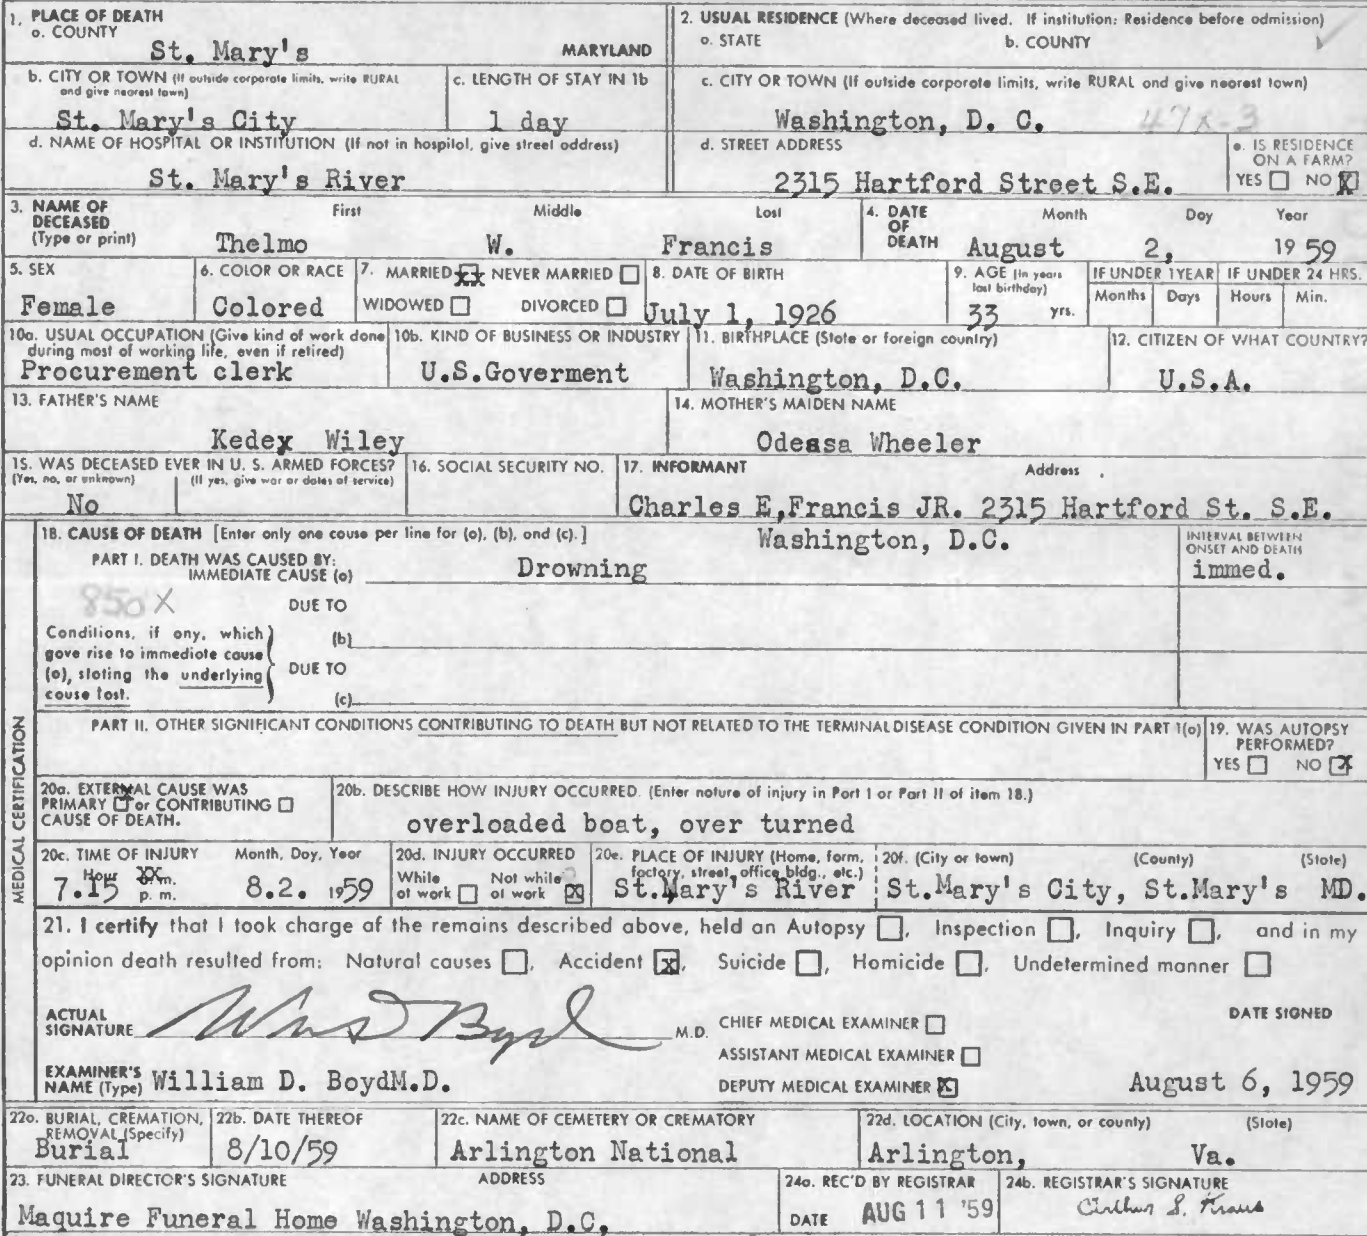 1. PLACE OF DEATH
a. COUNTY
St. Mary's MARYLAND
2. USUAL RESIDENCE (Where deceased lived. If institution: Residence before admission)
a. STATE b. COUNTY
b. CITY OR TOWN (If outside corporate limits, write RURAL and give nearest town)
St. Mary's City
c. LENGTH OF STAY IN 1b
1 day
c. CITY OR TOWN (If outside corporate limits, write RURAL and give nearest town)
Washington, D. C. 47X-3
d. NAME OF HOSPITAL OR INSTITUTION (If not in hospital, give street address)
St. Mary's River
d. STREET ADDRESS
2315 Hartford Street S.E.
e. IS RESIDENCE ON A FARM?
YES NO X
3. NAME OF DECEASED (Type or print)
First Middle Last
Thelmo W. Francis
4. DATE OF DEATH
Month Day Year
August 2, 1959
5. SEX
Female
6. COLOR OR RACE
Colored
7. MARRIED XX NEVER MARRIED
WIDOWED DIVORCED
8. DATE OF BIRTH
July 1, 1926
9. AGE (In years last birthday)
33 yrs.
IF UNDER 1 YEAR
Months Days
IF UNDER 24 HRS.
Hours Min.
10a. USUAL OCCUPATION (Give kind of work done during most of working life, even if retired)
Procurement clerk
10b. KIND OF BUSINESS OR INDUSTRY
U.S.Goverment
11. BIRTHPLACE (State or foreign country)
Washington, D.C.
12. CITIZEN OF WHAT COUNTRY?
U.S.A.
13. FATHER'S NAME
Kedex Wiley
14. MOTHER'S MAIDEN NAME
Odessa Wheeler
15. WAS DECEASED EVER IN U. S. ARMED FORCES?
(Yes, no, or unknown) (If yes, give war or dates of service)
No
16. SOCIAL SECURITY NO.
17. INFORMANT Address
Charles E,Francis JR. 2315 Hartford St. S.E.
Washington, D.C.
18. CAUSE OF DEATH [Enter only one cause per line for (a), (b), and (c).]
PART I. DEATH WAS CAUSED BY:
IMMEDIATE CAUSE (a) Drowning
INTERVAL BETWEEN ONSET AND DEATH
immed.
850X
DUE TO
(b)
Conditions, if any, which gave rise to immediate cause (a), stating the underlying cause last.
DUE TO
(c)
PART II. OTHER SIGNIFICANT CONDITIONS CONTRIBUTING TO DEATH BUT NOT RELATED TO THE TERMINAL DISEASE CONDITION GIVEN IN PART 1(a)
19. WAS AUTOPSY PERFORMED?
YES NO X
MEDICAL CERTIFICATION
20a. EXTERNAL CAUSE WAS PRIMARY X or CONTRIBUTING CAUSE OF DEATH.
20b. DESCRIBE HOW INJURY OCCURRED. (Enter nature of injury in Part I or Part II of item 18.)
overloaded boat, over turned
20c. TIME OF INJURY Month, Day, Year
Hour XX m.
7.15 p. m. 8.2. 1959
20d. INJURY OCCURRED
While at work Not while at work X
20e. PLACE OF INJURY (Home, farm, factory, street, office bldg., etc.)
St.Mary's River
20f. (City or town) (County) (State)
St.Mary's City, St.Mary's MD.
21. I certify that I took charge of the remains described above, held an Autopsy , Inspection , Inquiry , and in my
opinion death resulted from: Natural causes , Accident X, Suicide , Homicide , Undetermined manner
ACTUAL SIGNATURE Wm D Boyd M.D.
CHIEF MEDICAL EXAMINER
ASSISTANT MEDICAL EXAMINER
DEPUTY MEDICAL EXAMINER X
DATE SIGNED
August 6, 1959
EXAMINER'S NAME (Type) William D. BoydM.D.
22a. BURIAL, CREMATION, REMOVAL (Specify)
Burial
22b. DATE THEREOF
8/10/59
22c. NAME OF CEMETERY OR CREMATORY
Arlington National
22d. LOCATION (City, town, or county) (State)
Arlington, Va.
23. FUNERAL DIRECTOR'S SIGNATURE ADDRESS
Maquire Funeral Home Washington, D.C.
24a. REC'D BY REGISTRAR
DATE AUG 11 '59
24b. REGISTRAR'S SIGNATURE
Arthur S. Kraus